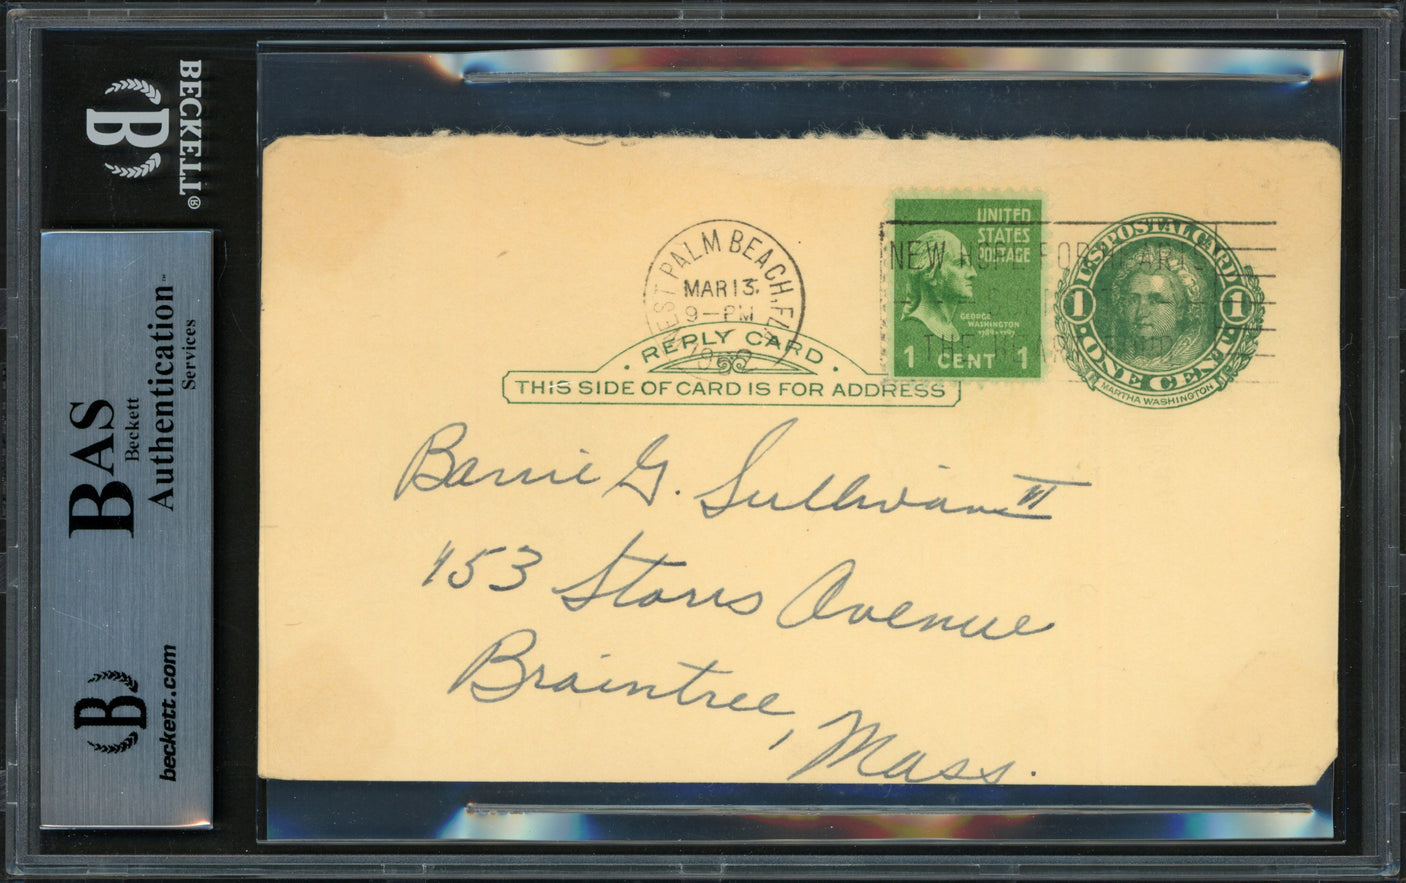 BECKETT®
B
BAS
Beckett
Authentication™
Services
B
beckett.com
WEST PALM BEACH, FLA
MAR 13
9–PM
UNITED
STATES
POSTAGE
GEORGE
WASHINGTON
1789–1797
1 CENT 1
NEW HOPE FOR HEARTS
THE HEART FUND
U.S. POSTAL CARD
1 1
ONE CENT
MARTHA WASHINGTON
REPLY CARD
THIS SIDE OF CARD IS FOR ADDRESS
Barrie G. Sullivan II
153 Storrs Avenue
Braintree, Mass.